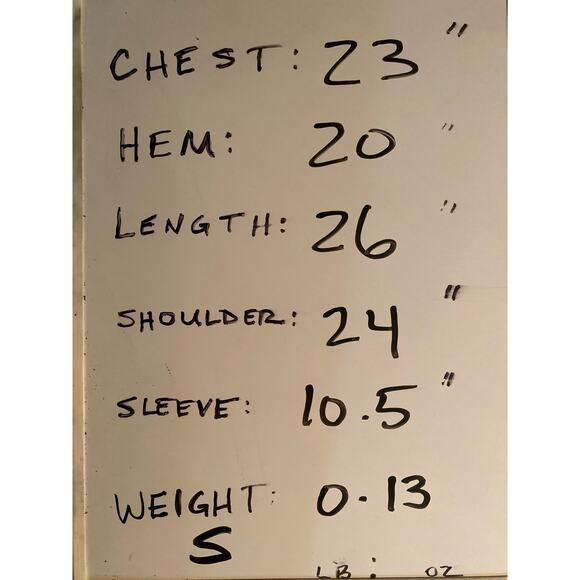 CHEST: 23 "
HEM: 20 "
LENGTH: 26 "
SHOULDER: 24 "
SLEEVE: 10.5 "
WEIGHT: 0.13
S
LB : OZ